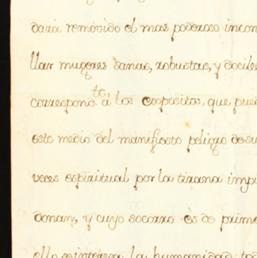 dará removido el mas poderoso incon
llar mugeres sanas, robustas, y dociles
correspond.te á los Expositos, que pue
este medio del manifiesto peligro de su
veces espiritual por la tirana impi
donan, y cuyo socorro es de prime
ello se interesa la humanidad, tod